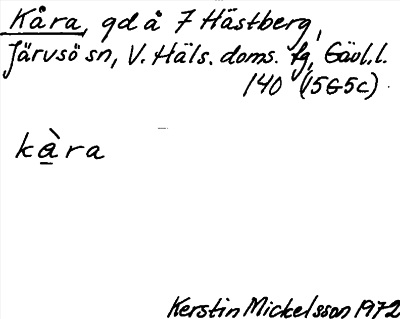 Kåra, gd å 7 Hästberg,
Järvsö sn, V. Häls. doms. fg, Gävl.l.
140 (15G5c)
kàra
Kerstin Mickelsson 1972